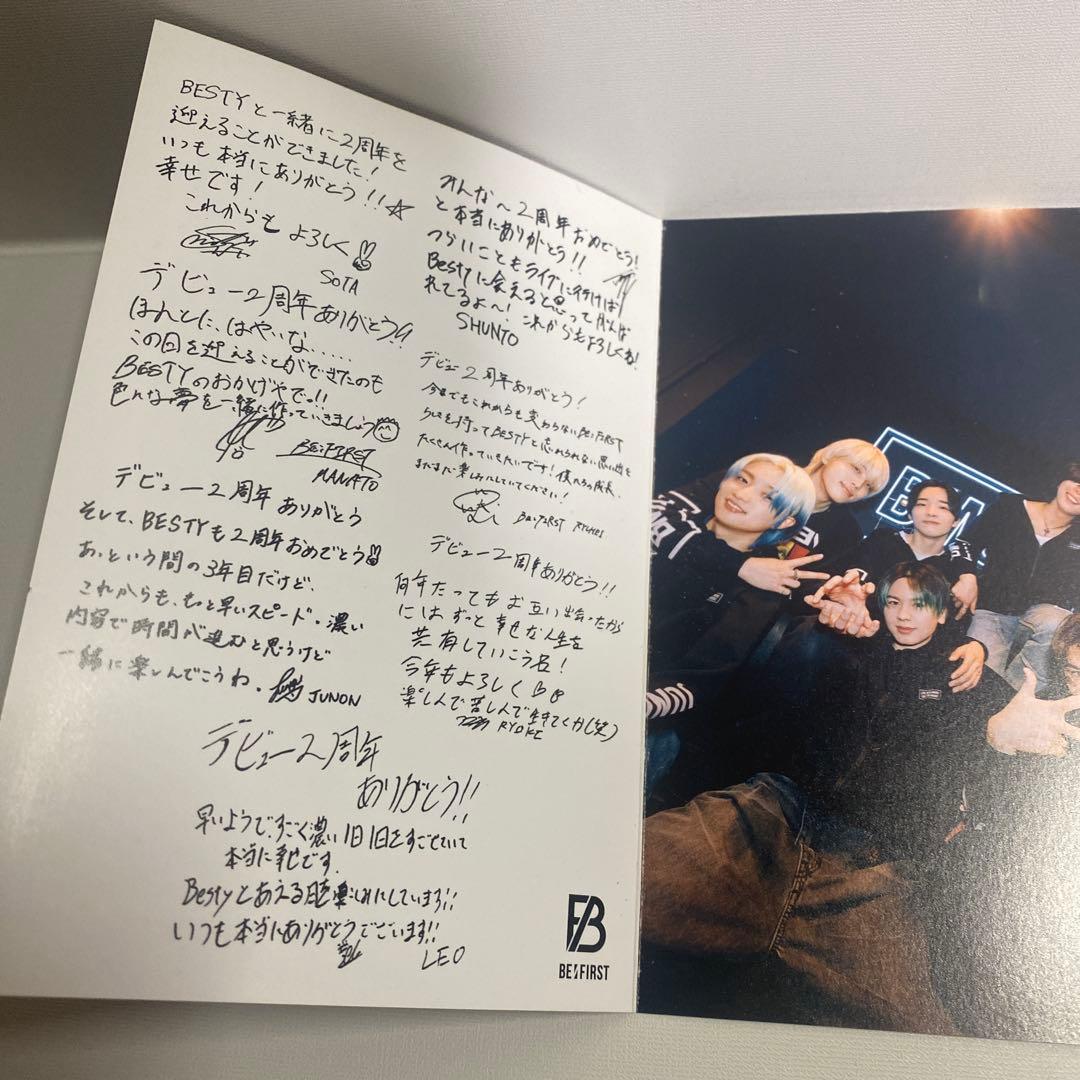 BESTYと一緒に2周年を
迎えることができました!
いつも本当にありがとう!!☆
幸せです!
これからも よろしく
SOTA
デビュー2周年ありがとう!!
ほんとに、はやいな.....
この日を迎えることができたのも
BESTYのおかげやでっ!!
色んな夢を一緒に作っていきましょう
BE:FIRST
MANATO
デビュー2周年 ありがとう
そして、BESTYも2周年おめでとう
あっという間の3年目だけど、
これからも、もっと早いスピード・濃い
内容で時間が進むと思うけど
一緒に楽しんでこうね。
JUNON
みんな〜2周年おめでとう!
と本当にありがとう!!
つらいこともライブに行けば
Bestyに会えると思ってがんば
れてるよ〜! これからもよろしくね!
SHUNTO
デビュー2周年ありがとう!
今までもこれからも変わらないBE:FIRST
らしさを持ってBESTYと忘れられない思い出を
たくさん作っていきたいです!僕たちの成長、
まだまだ楽しみにしていてください!
BE:FIRST RYUHEI
デビュー2周年ありがとう!!
何年たってもお互い出会ったから
にはずっと幸せな人生を
共有していこうな!
今年もよろしく
楽しんで苦しんで生きてくか(笑)
RYOKI
デビュー2周年
ありがとう!!
早いようで、すごく濃い1日1日をすごせていて
本当に幸せです.
Bestyとあえる日を楽しみにしています!!
いつも本当にありがとうございます!!
LEO
BE:FIRST